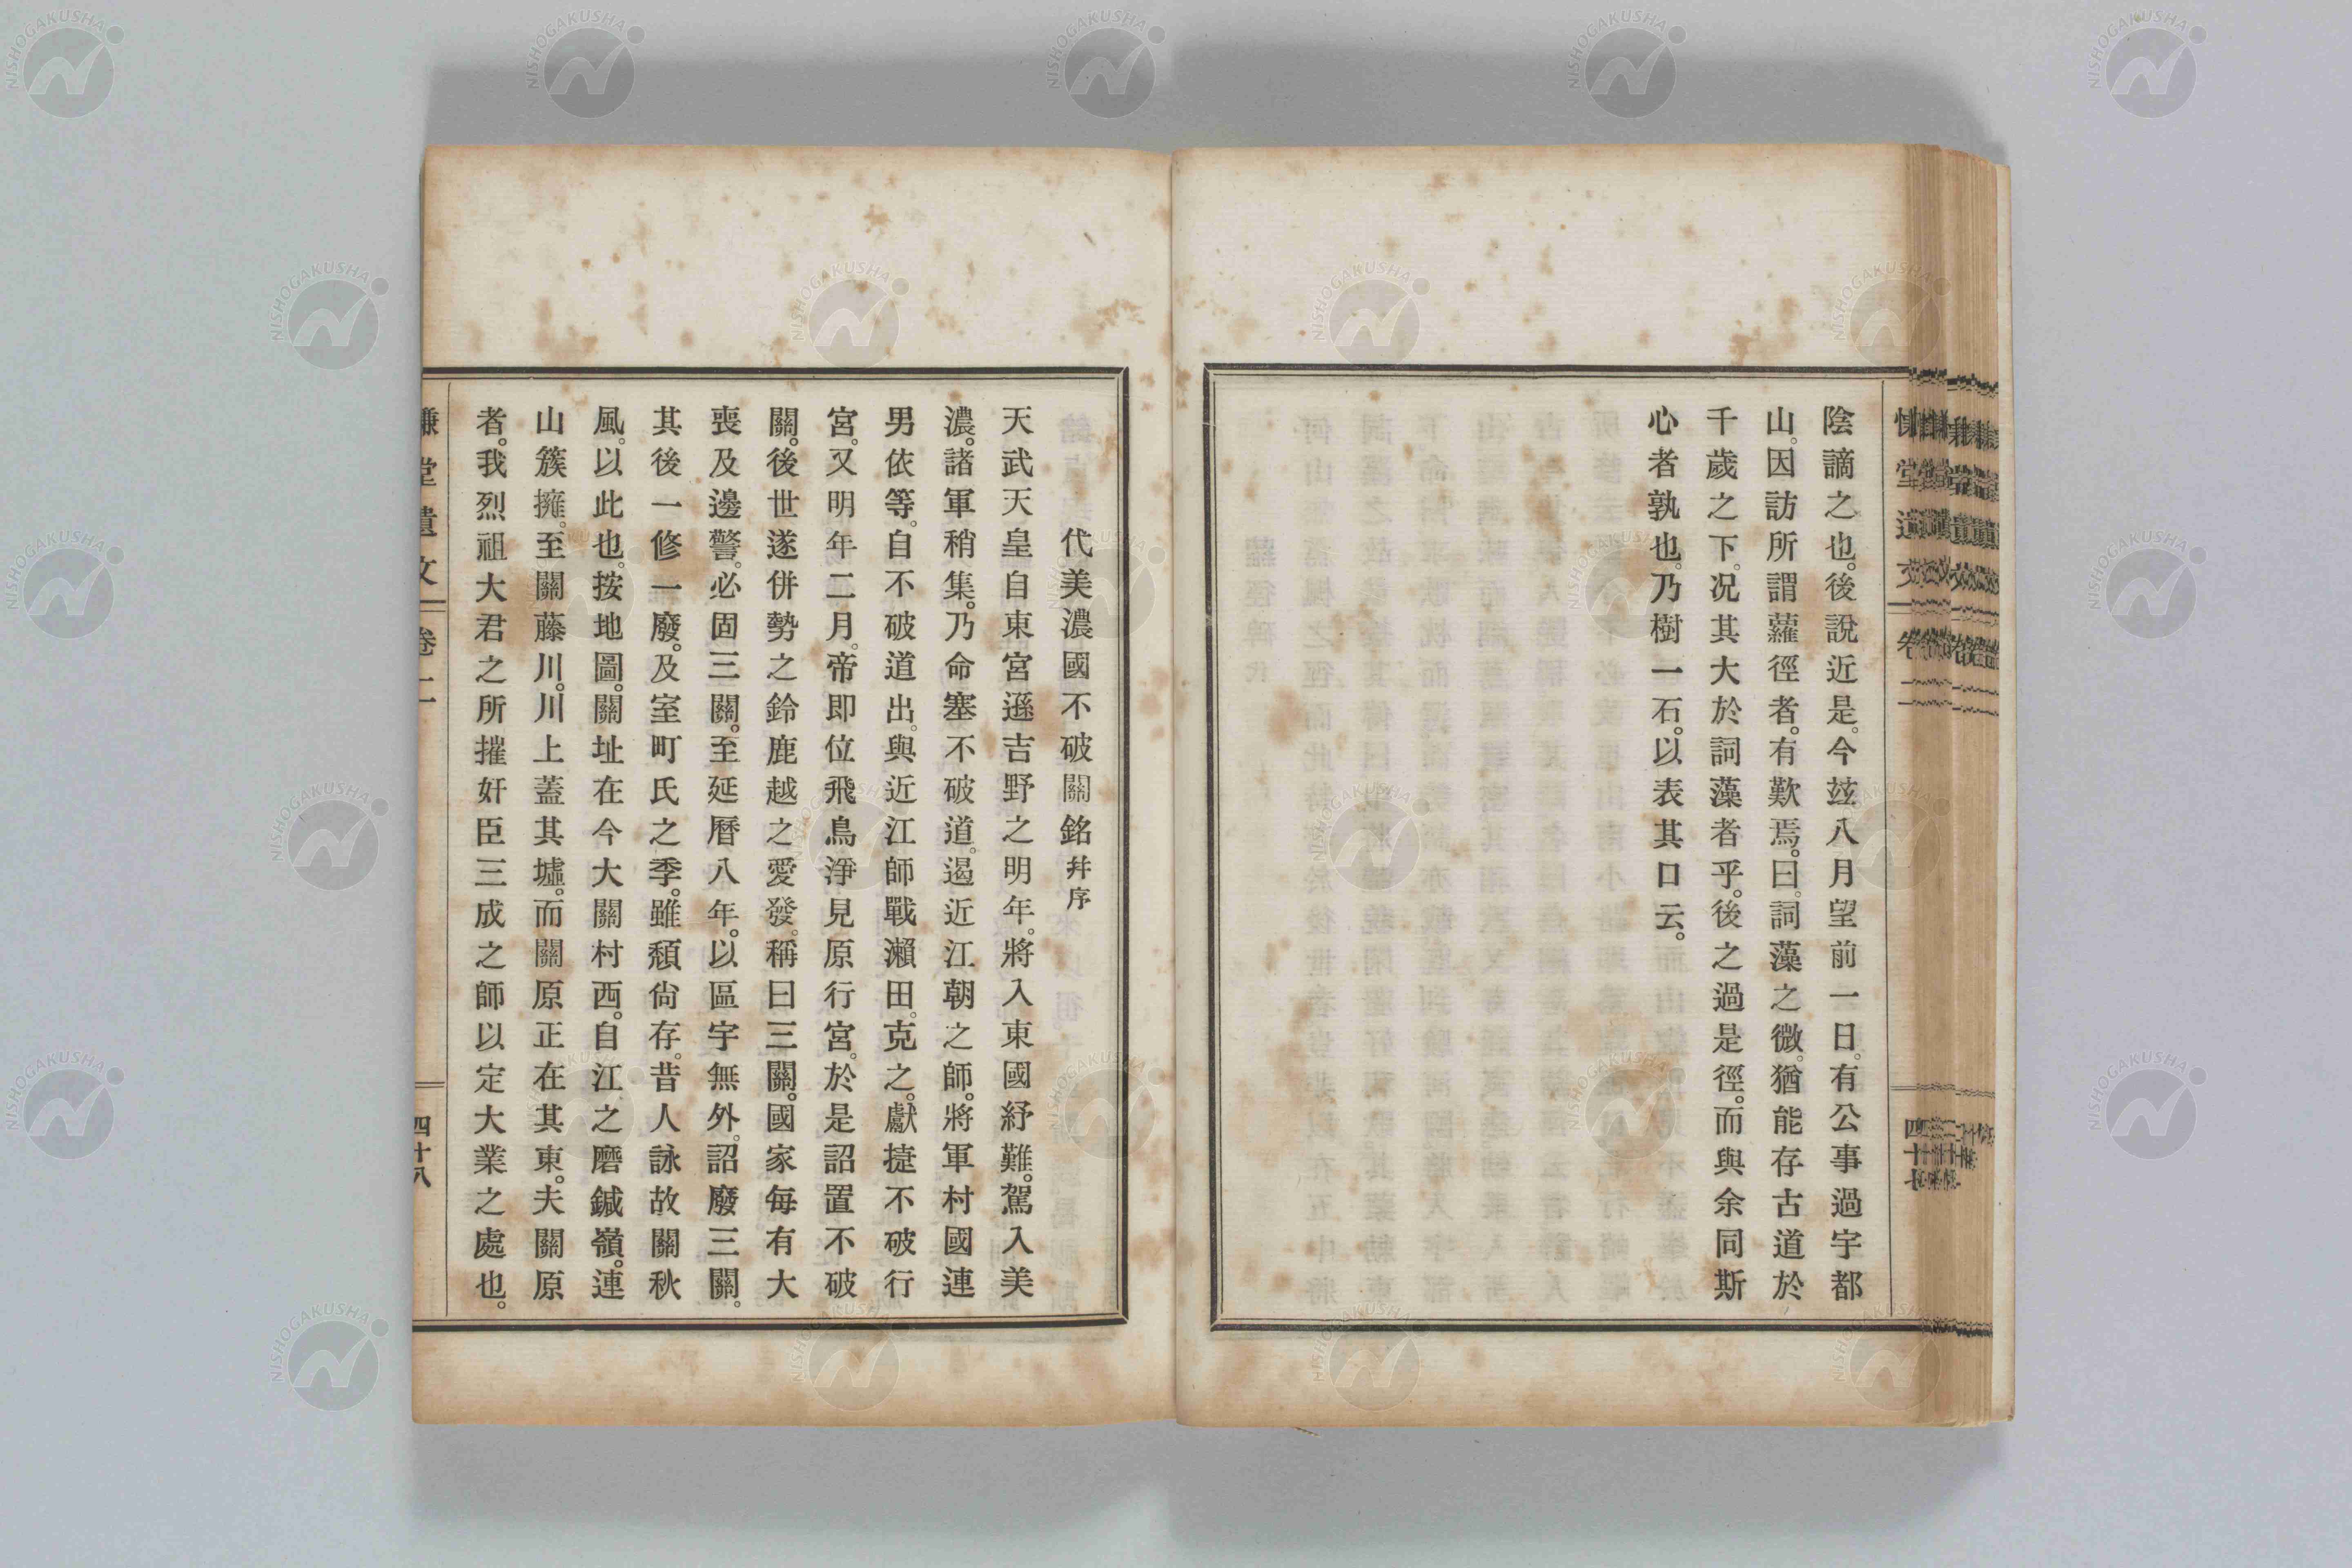 陰謫之也。後說近是。今玆八月望前一日。有公事過宇都
山。因訪所謂蘿徑者。有歎焉。曰。詞藻之微。猶能存古道於
千歲之下。况其大於詞藻者乎。後之過是徑。而與余同斯
心者孰也。乃樹一石。以表其口云。
代美濃國不破關銘幷序
天武天皇自東宮遜吉野之明年。將入東國紓難。駕入美
濃。諸軍稍集。乃命塞不破道。遏近江朝之師。將軍村國連
男依等。自不破道出。與近江師戰瀨田。克之。獻捷不破行
宮。又明年二月。帝卽位飛鳥淨見原行宮。於是詔置不破
關。後世遂併勢之鈴鹿越之愛發。稱曰三關。國家每有大
喪及邊警。必固三關。至延曆八年。以區宇無外。詔廢三關。
其後一修一廢。及室町氏之季。雖頹尙存。昔人詠故關秋
風。以此也。按地圖。關址在今大關村西。自江之磨鍼嶺。連
山簇擁。至關藤川。川上蓋其墟。而關原正在其東。夫關原
者。我烈祖大君之所摧奸臣三成之師以定大業之處也。
慊堂遺文 卷二 四十八
NISHOGAKUSHA